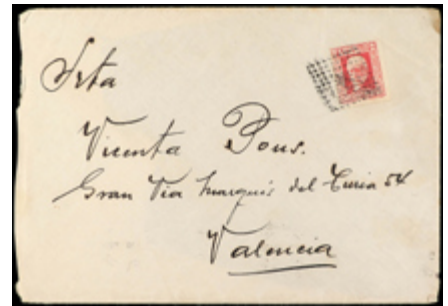 Srta
Vicenta Pons.
Gran Via Marqués del Turia 54
Valencia